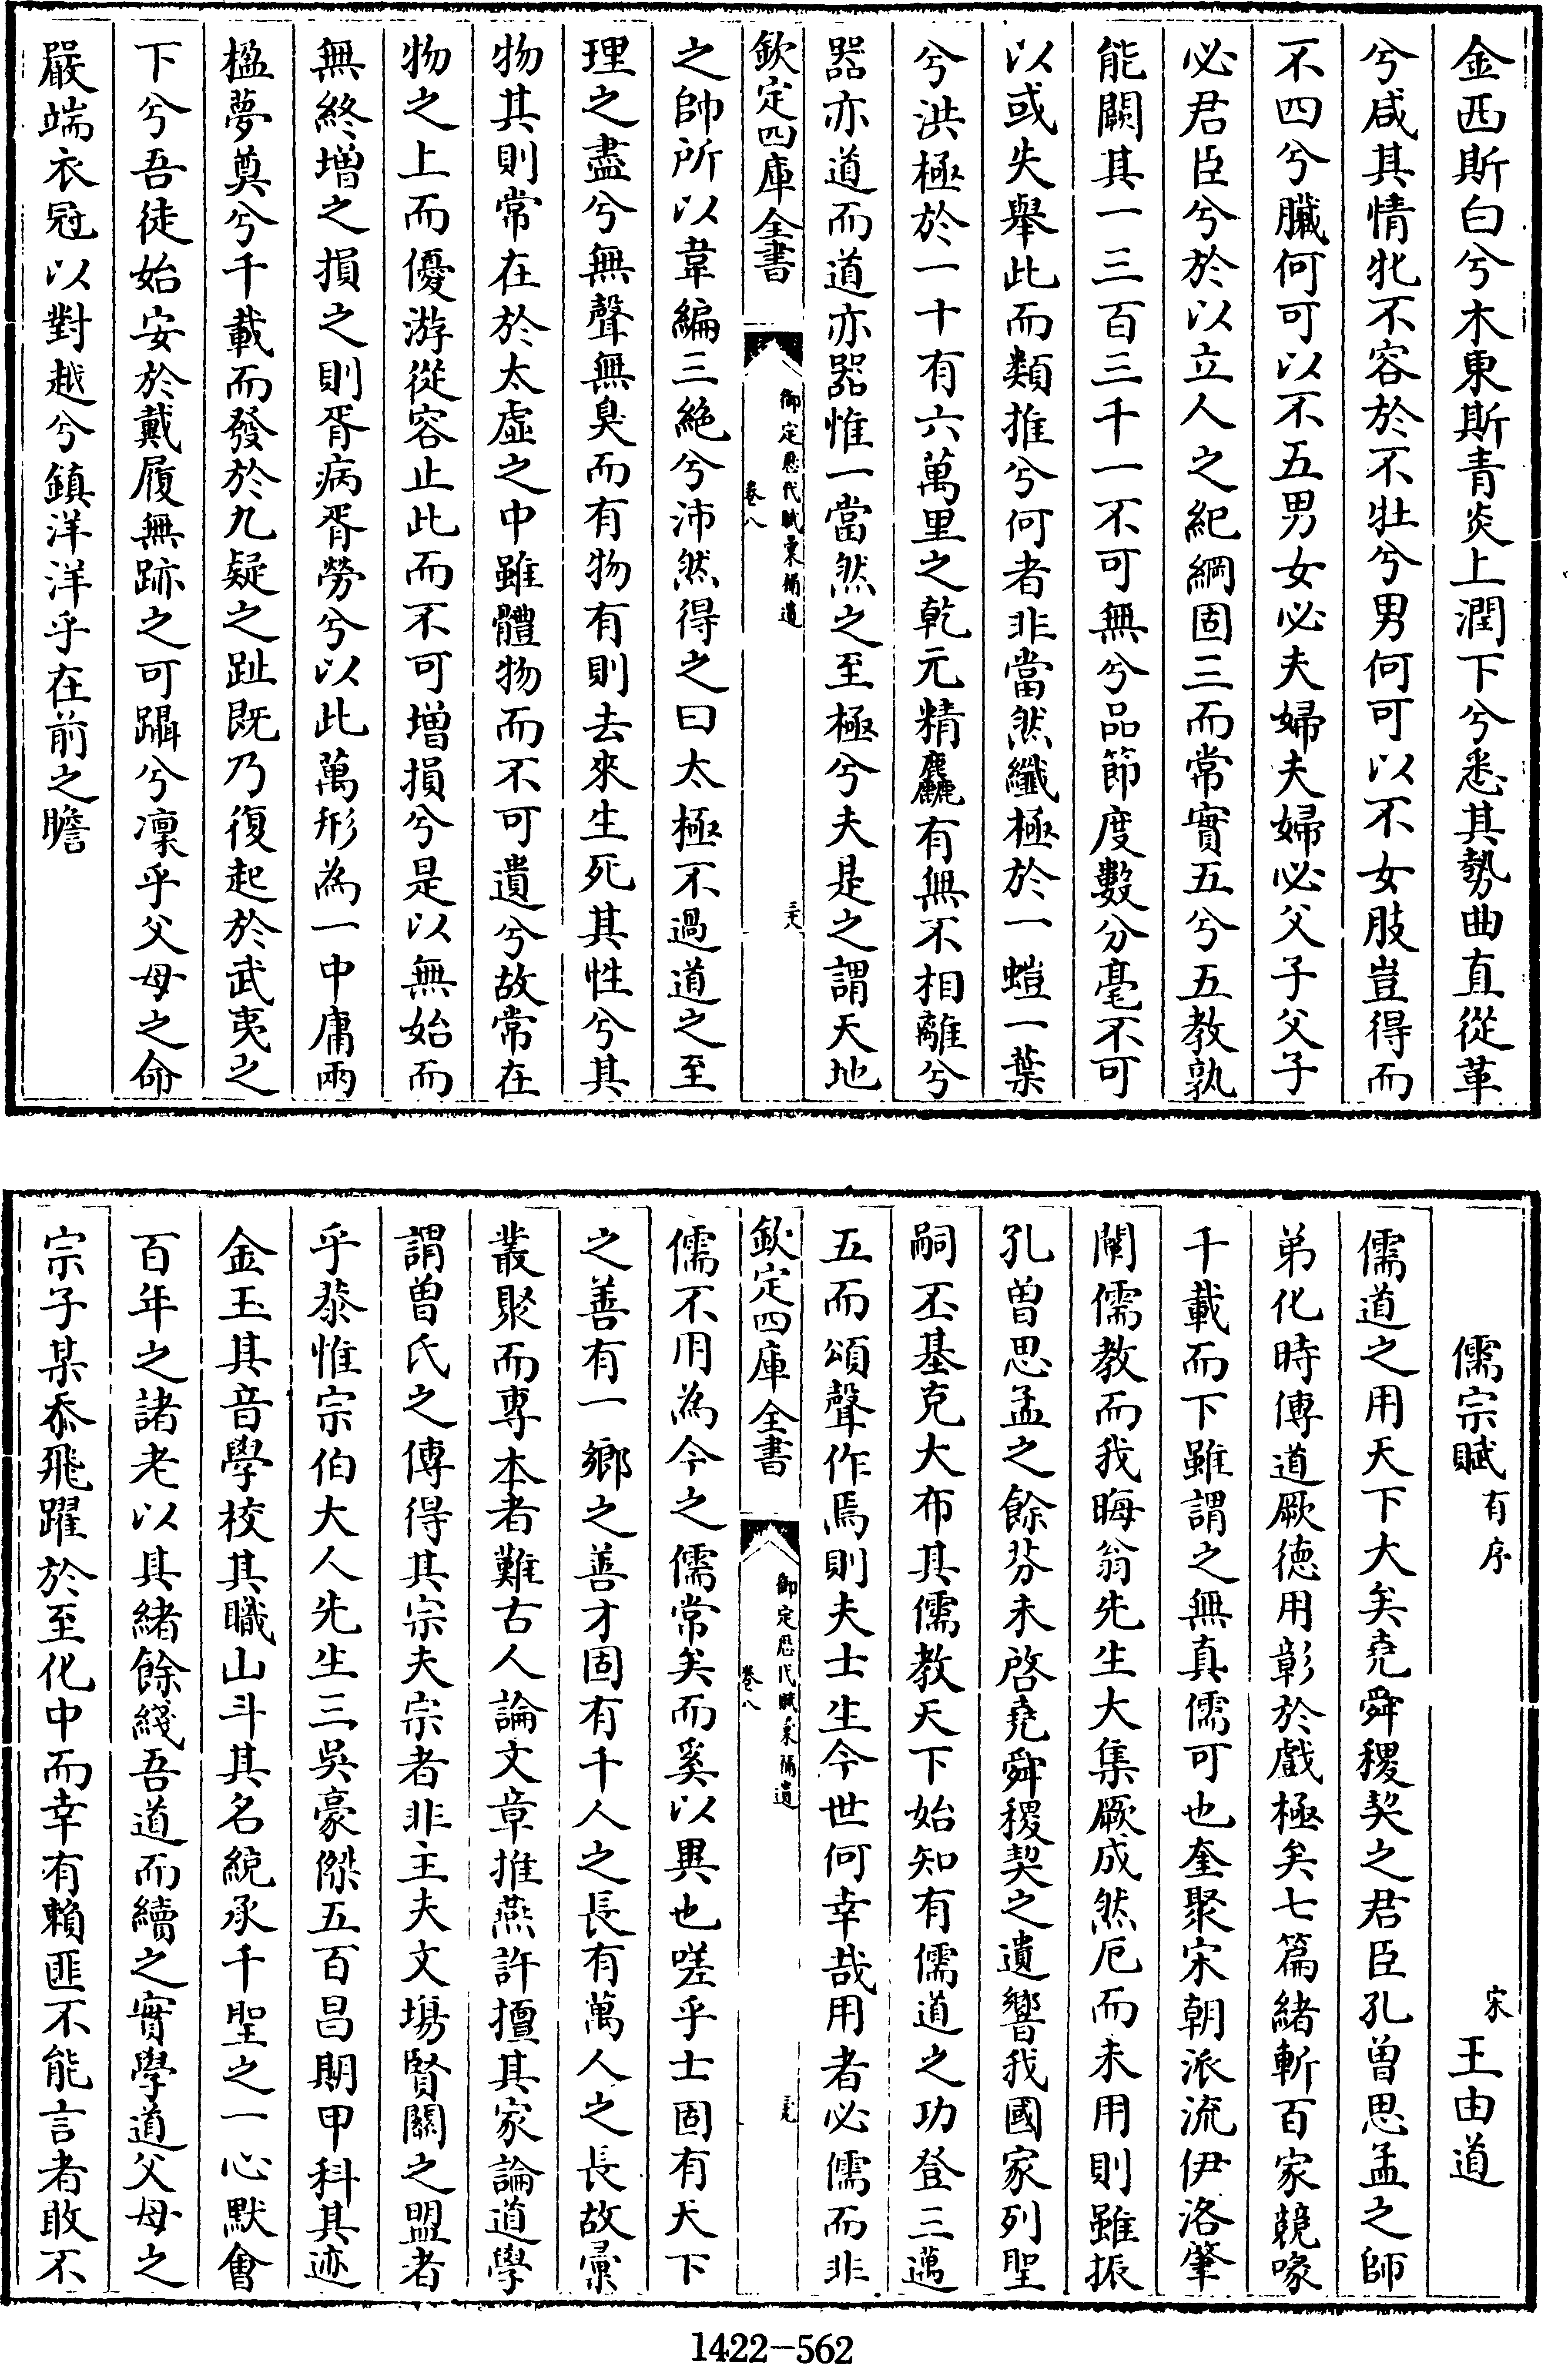 金西斯白兮木東斯青炎上潤下兮悉其勢曲直從革
兮咸其情牝不容於不牡兮男何可以不女肢豈得而
不四兮臟何可以不五男女必夫婦夫婦必父子父子
必君臣兮於以立人之紀綱固三而常實五兮五教孰
能闕其一三百三千一不可無兮品節度數分毫不可
以或失舉此而類推兮何者非當然纖極於一螘一葉
兮洪極於一十有六萬里之乾元精麤有無不相離兮
器亦道而道亦器惟一當然之至極兮夫是之謂天地
欽定四庫全書 御定歷代賦彙補遺 卷八 三六
之帥所以韋編三絶兮沛然得之曰太極不過道之至
理之盡兮無聲無臭而有物有則去來生死其性兮其
物其則常在於太虛之中雖體物而不可遺兮故常在
物之上而優游從容止此而不可增損兮是以無始而
無終增之損之則胥病胥勞兮以此萬形為一中庸兩
楹夢奠兮千載而發於九疑之趾既乃復起於武夷之
下兮吾徒始安於戴履無跡之可躡兮凜乎父母之命
嚴端衣冠以對越兮鎮洋洋乎在前之瞻
儒宗賦有序 宋 王由道
儒道之用天下大矣堯舜稷契之君臣孔曾思孟之師
弟化時傳道厥德用彰於戲極矣七篇緒斬百家競喙
千載而下雖謂之無真儒可也奎聚宋朝派流伊洛肇
闡儒教而我晦翁先生大集厥成然厄而未用則雖振
孔曽思孟之餘芬未啓堯舜稷契之遺響我國家列聖
嗣丕基克大布其儒教天下始知有儒道之功登三邁
五而頌聲作焉則夫士生今世何幸哉用者必儒而非
欽定四庫全書 御定歷代賦彙補遺 卷八 三九
儒不用為今之儒常矣而奚以異也嗟乎士固有天下
之善有一鄉之善才固有千人之長有萬人之長故彙
叢聚而專本者難古人論文章推燕許擅其家論道學
謂曽氏之傳得其宗夫宗者非主夫文塲賢關之盟者
乎恭惟宗伯大人先生三吳豪傑五百昌期甲科其迹
金玉其音學校其職山斗其名統承千聖之一心默會
百年之諸老以其緒餘綫吾道而續之實學道父母之
宗子某忝飛躍於至化中而幸有賴匪不能言者敢不
1422-562